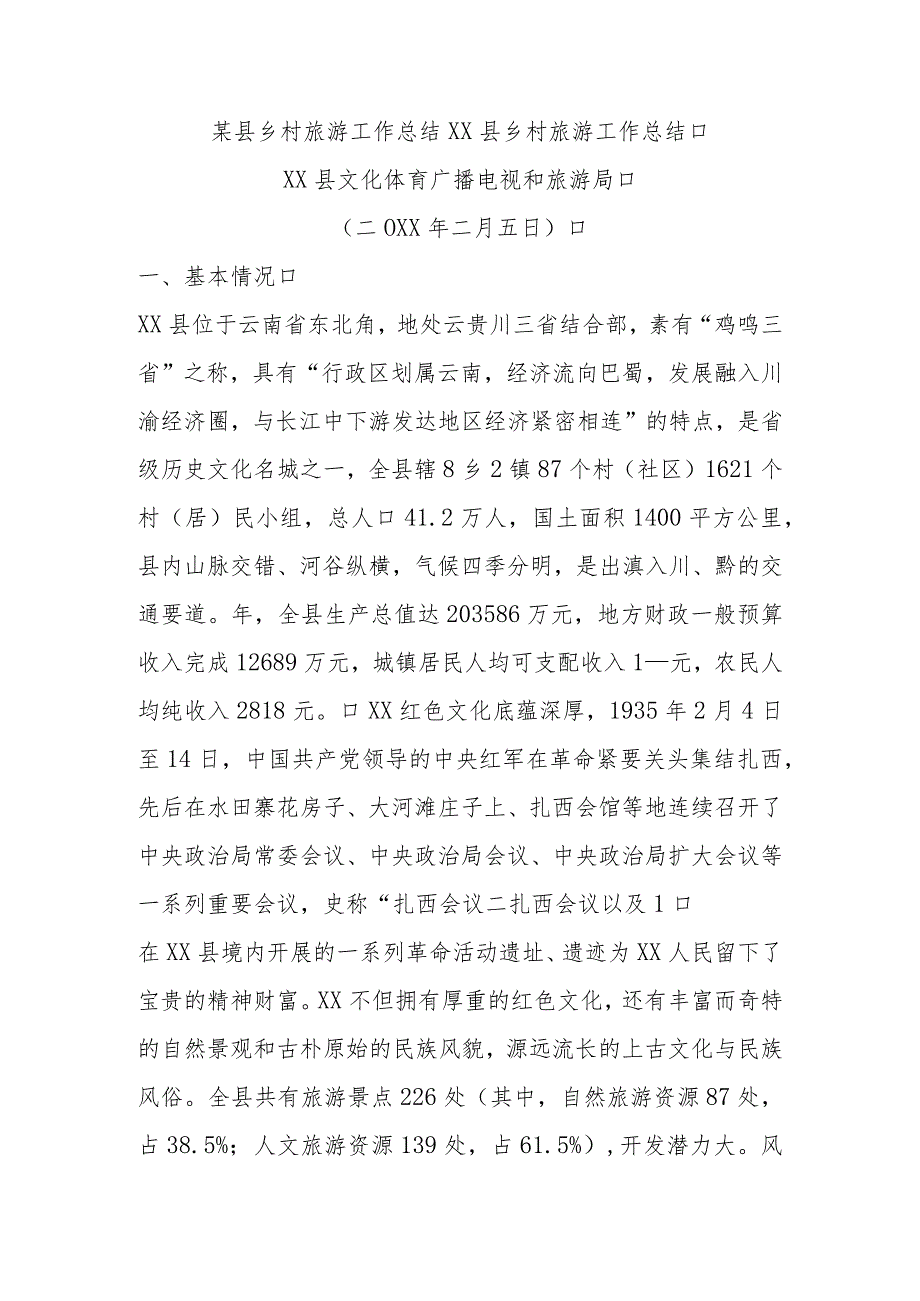 某县乡村旅游工作总结 XX 县乡村旅游工作总结口
XX 县文化体育广播电视和旅游局口
（二 OXX 年二月五日）口
一、基本情况口
XX 县位于云南省东北角，地处云贵川三省结合部，素有“鸡鸣三
省”之称，具有“行政区划属云南，经济流向巴蜀，发展融入川
渝经济圈，与长江中下游发达地区经济紧密相连”的特点，是省
级历史文化名城之一，全县辖 8 乡 2 镇 87 个村（社区）1621 个
村（居）民小组，总人口 41.2 万人，国土面积 1400 平方公里，
县内山脉交错、河谷纵横，气候四季分明，是出滇入川、黔的交
通要道。年，全县生产总值达 203586 万元，地方财政一般预算
收入完成 12689 万元，城镇居民人均可支配收入 1—元，农民人
均纯收入 2818 元。口 XX 红色文化底蕴深厚，1935 年 2 月 4 日
至 14 日，中国共产党领导的中央红军在革命紧要关头集结扎西，
先后在水田寨花房子、大河滩庄子上、扎西会馆等地连续召开了
中央政治局常委会议、中央政治局会议、中央政治局扩大会议等
一系列重要会议，史称“扎西会议二扎西会议以及 1 口
在 XX 县境内开展的一系列革命活动遗址、遗迹为 XX 人民留下了
宝贵的精神财富。XX 不但拥有厚重的红色文化，还有丰富而奇特
的自然景观和古朴原始的民族风貌，源远流长的上古文化与民族
风俗。全县共有旅游景点 226 处（其中，自然旅游资源 87 处，
占 38.5%；人文旅游资源 139 处，占 61.5%）,开发潜力大。风